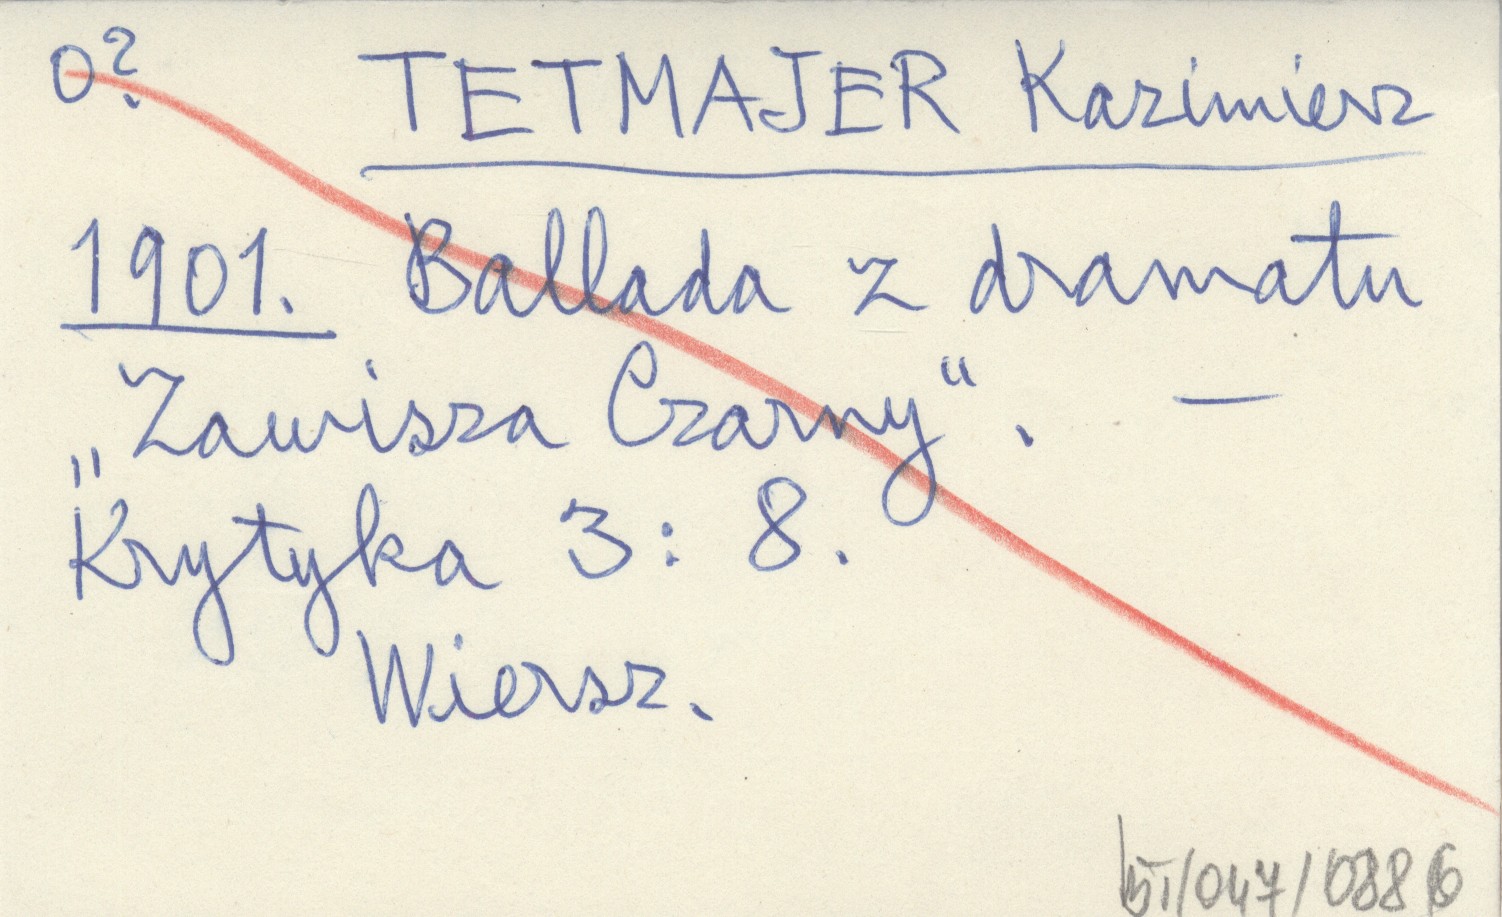 0? TETMAJER Kazimierz
1901. Ballada z dramatu
„Zawisza Czarny". —
Krytyka 3: 8.
Wiersz.